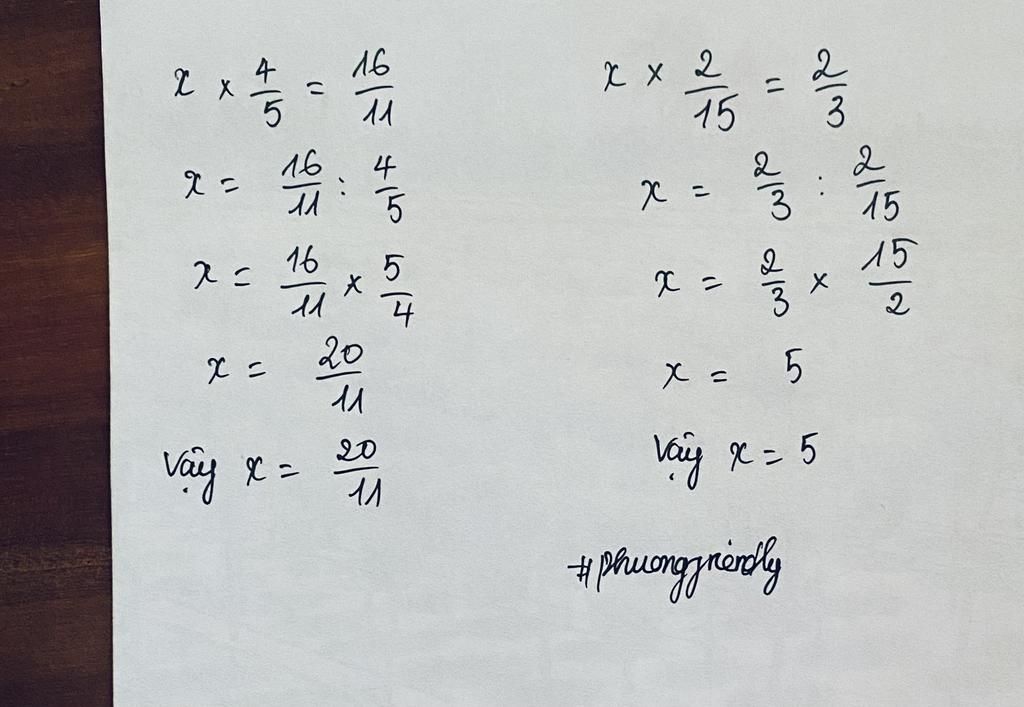 x × 4/5 = 16/11
x = 16/11 : 4/5
x = 16/11 × 5/4
x = 20/11
Vậy x = 20/11
x × 2/15 = 2/3
x = 2/3 : 2/15
x = 2/3 × 15/2
x = 5
Vậy x = 5
#phuongfriendly